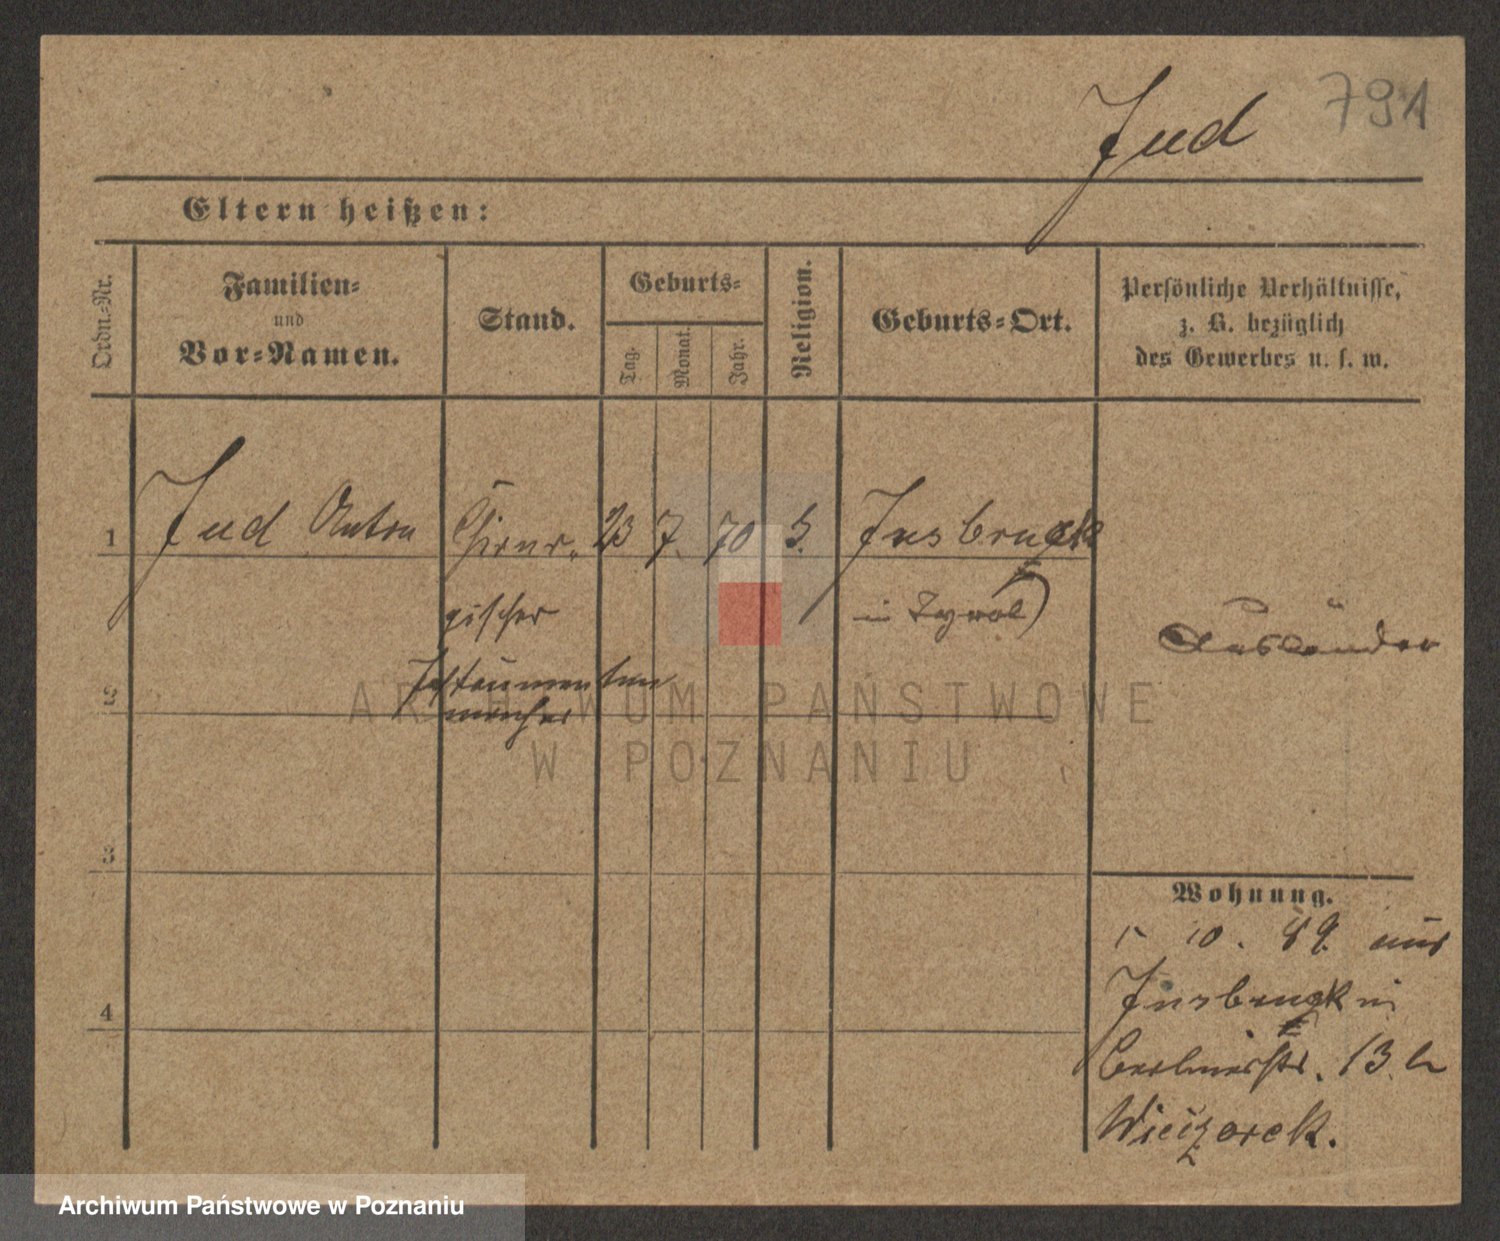 791
Jud
Eltern heißen:
Ordn.-Nr.
Familien-
und
Vor-Namen.
Stand.
Geburts-
Tag.
Monat.
Jahr.
Religion.
Geburts-Ort.
Persönliche Verhältnisse,
z. B. bezüglich
des Gewerbes u. s. w.
1 Jud Anton Chirur- 23 7. 70 Insbruck
gischer in Tyrol
Ausländer
2
macher
ARCHIWUM PAŃSTWOWE
W POZNANIU
3
Wohnung.
10. 89. aus
Insbruck in
4
Berlinerstr. 13 b
Wieczorek.
Archiwum Państwowe w Poznaniu